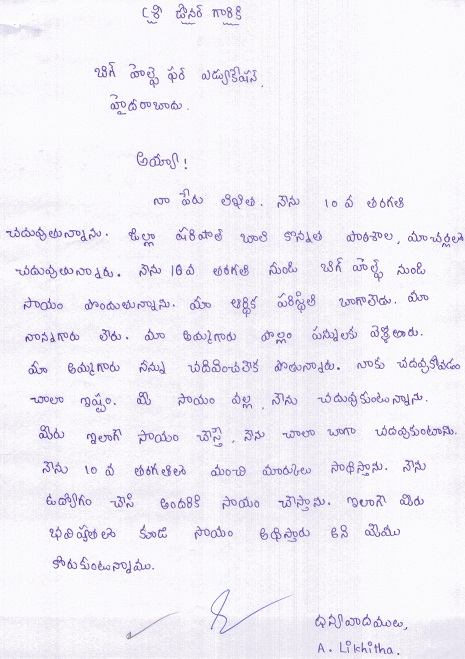 శ్రీ డోనర్ గారికి
బిగ్ హెల్ప్ ఫర్ ఎడ్యుకేషన్,
హైదరాబాదు.
అయ్యా!
నా పేరు లిఖిత. నేను 10 వ తరగతి
చదువుతున్నాను. జిల్లా పరిషత్ బాలికొన్నత పాఠశాల, మాచర్లలో
చదువుతున్నాను. నేను 10వ తరగతి నుండి బిగ్ హెల్ప్ నుండి
సాయం పొందుతున్నాను. మా ఆర్థిక పరిస్థితి బాగాలేదు. మా
నాన్నగారు లేరు. మా అమ్మగారు పొల్లం పన్నులకు వెళ్తారు.
మా అమ్మగారు నన్ను చదివించలేక పోతున్నారు. నాకు చదువుకోవడం
చాలా ఇష్టం. మీ సాయం వల్ల, నేను చదువుకుంటున్నాను.
మీరు ఇలాగే సాయం చేస్తే, నేను చాలా బాగా చదువుకుంటాను.
నేను 10 వ తరగతిలో మంచి మార్కులు సాధిస్తాను. నేను
ఉద్యోగం చేసి అందరికి సాయం చేస్తాను. ఇలాగే మీరు
భవిషత్‌లో కూడా సాయం అధిస్తారు అని మేము
కోరుకుంటున్నాము.
ధన్యవాదములు,
A. Likhitha.